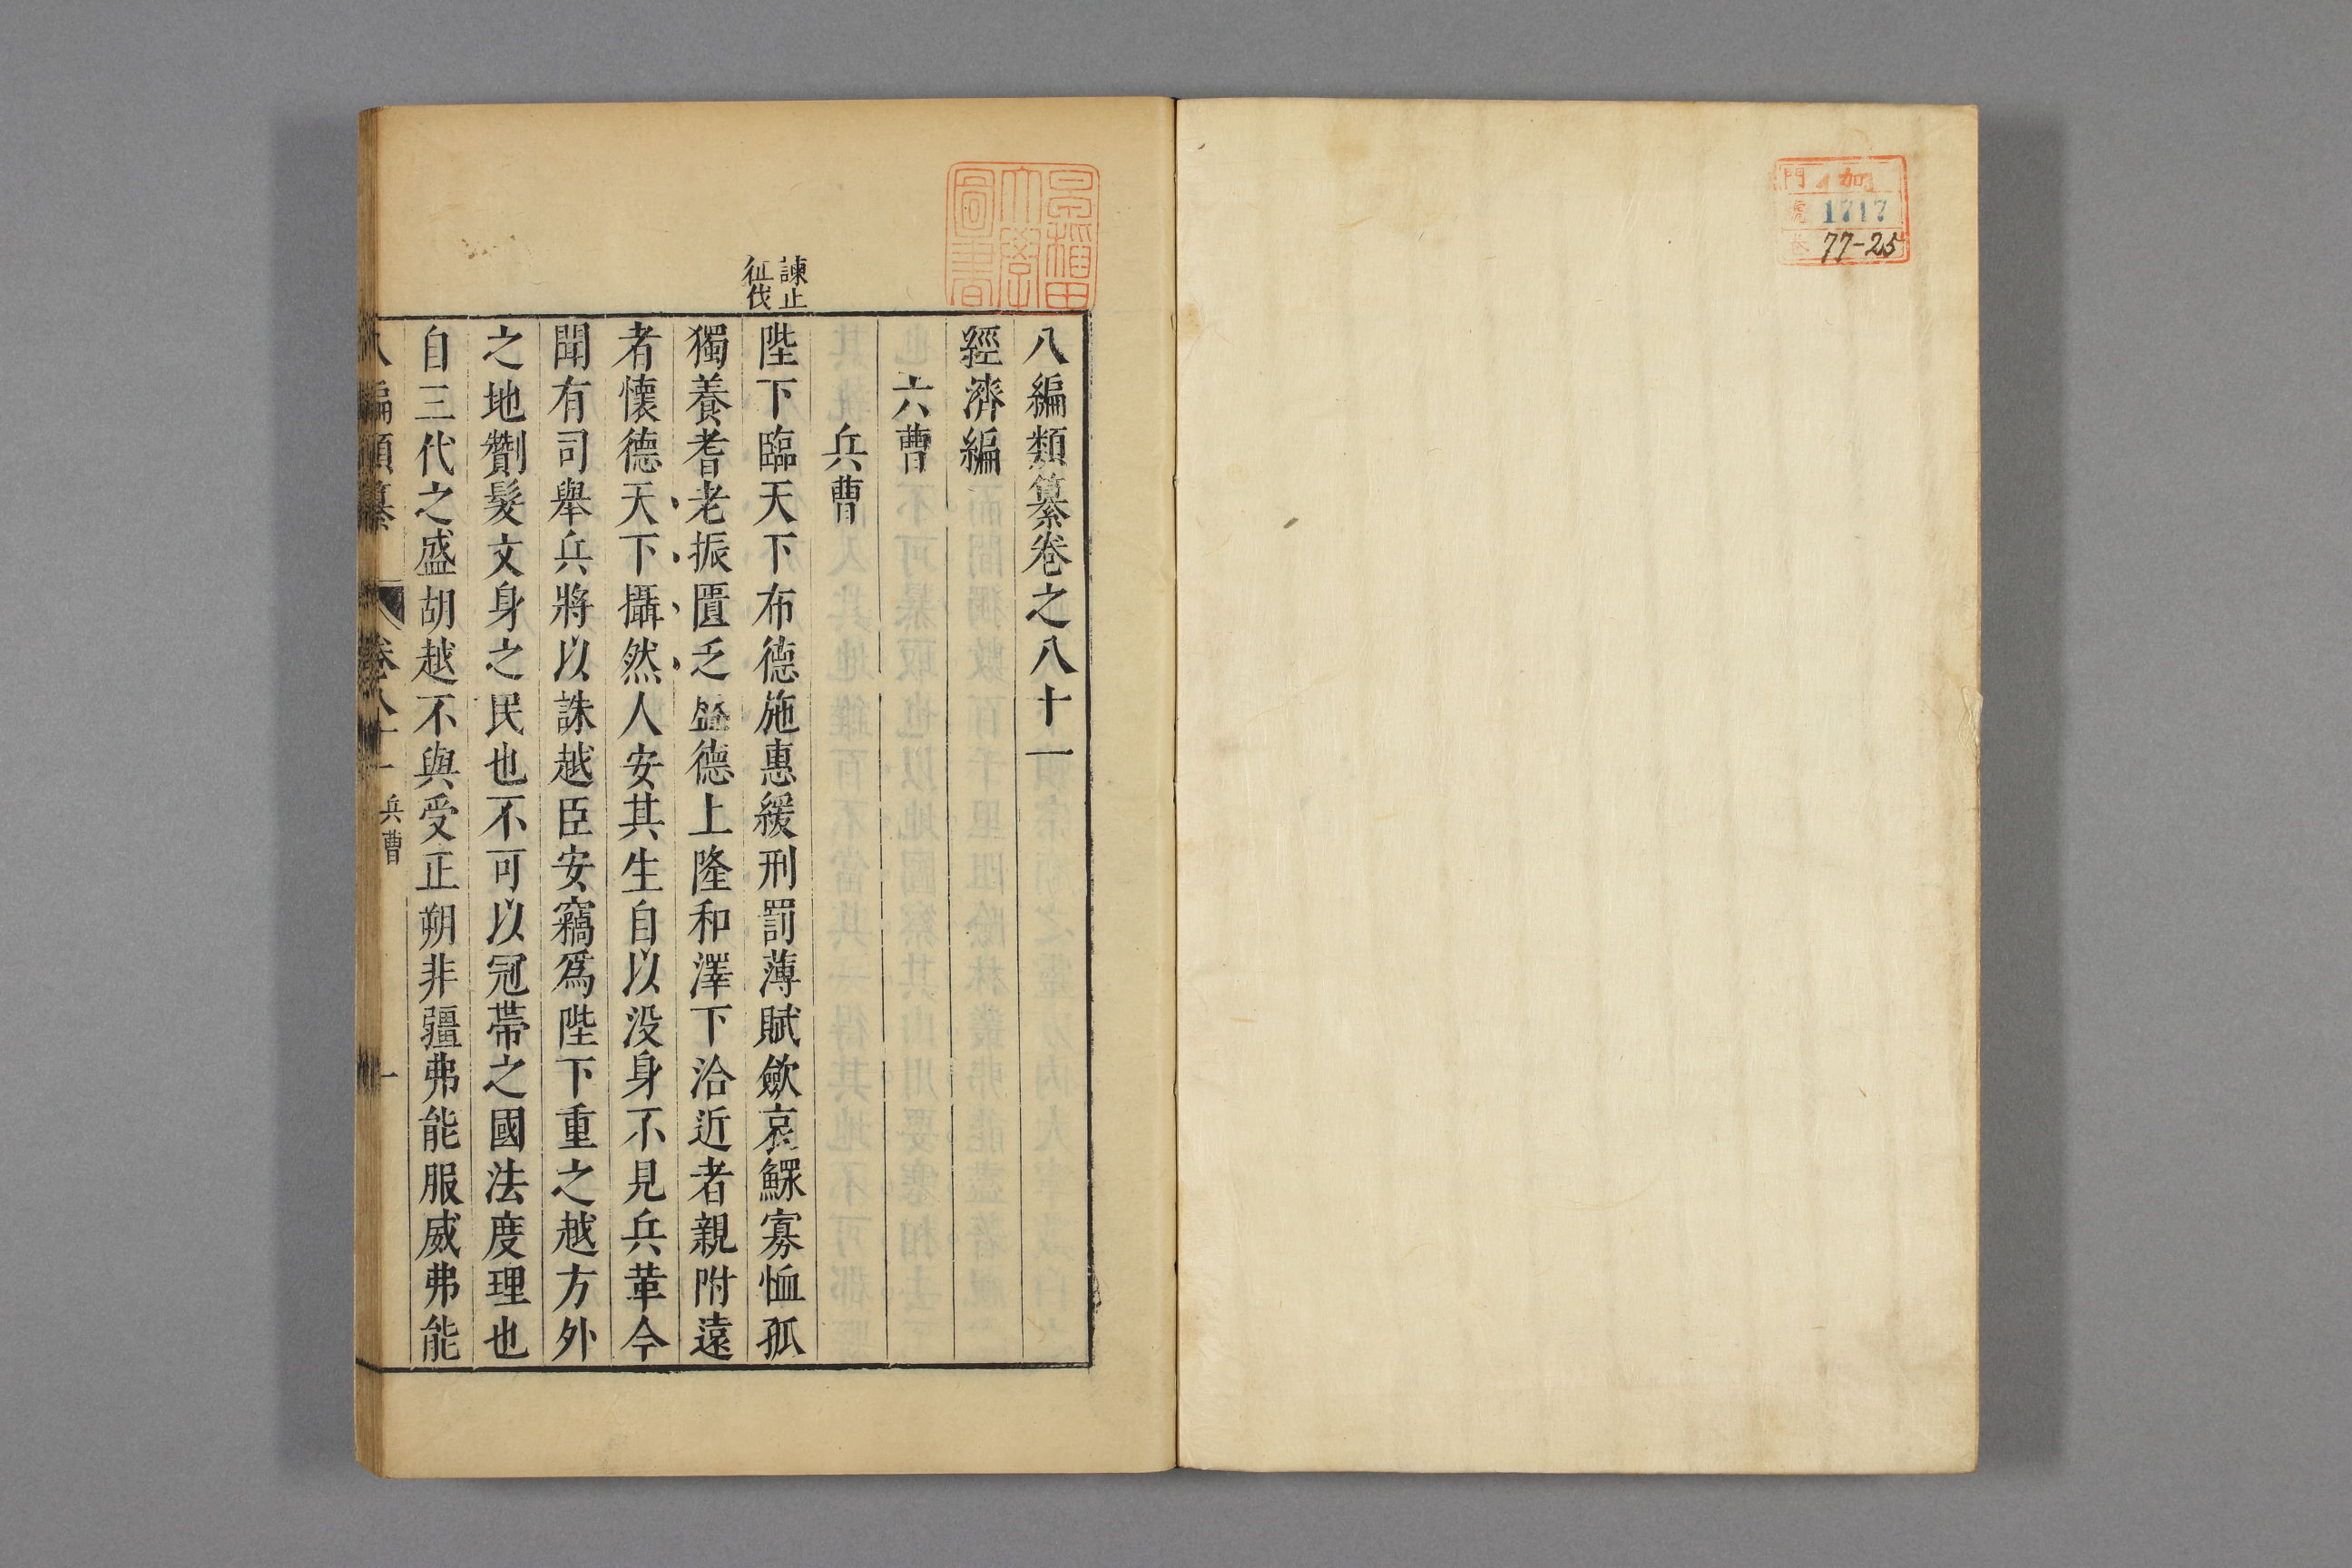 加門
1717號
77-25
早稲田大學圖書
八編類纂卷之八十一
經濟編
六曹
兵曹
諫止征伐
陛下臨天下布德施惠緩刑罰薄賦歛哀鰥寡恤孤
獨養耆老振匱乏盛德上隆和澤下洽近者親附遠
者懷德天下攝然人安其生自以没身不見兵革今
聞有司舉兵將以誅越臣安竊爲陛下重之越方外
之地劗髮文身之民也不可以冠帶之國法度理也
自三代之盛胡越不與受正朔非疆弗能服威弗能
八編類纂 卷八十一 兵曹 一